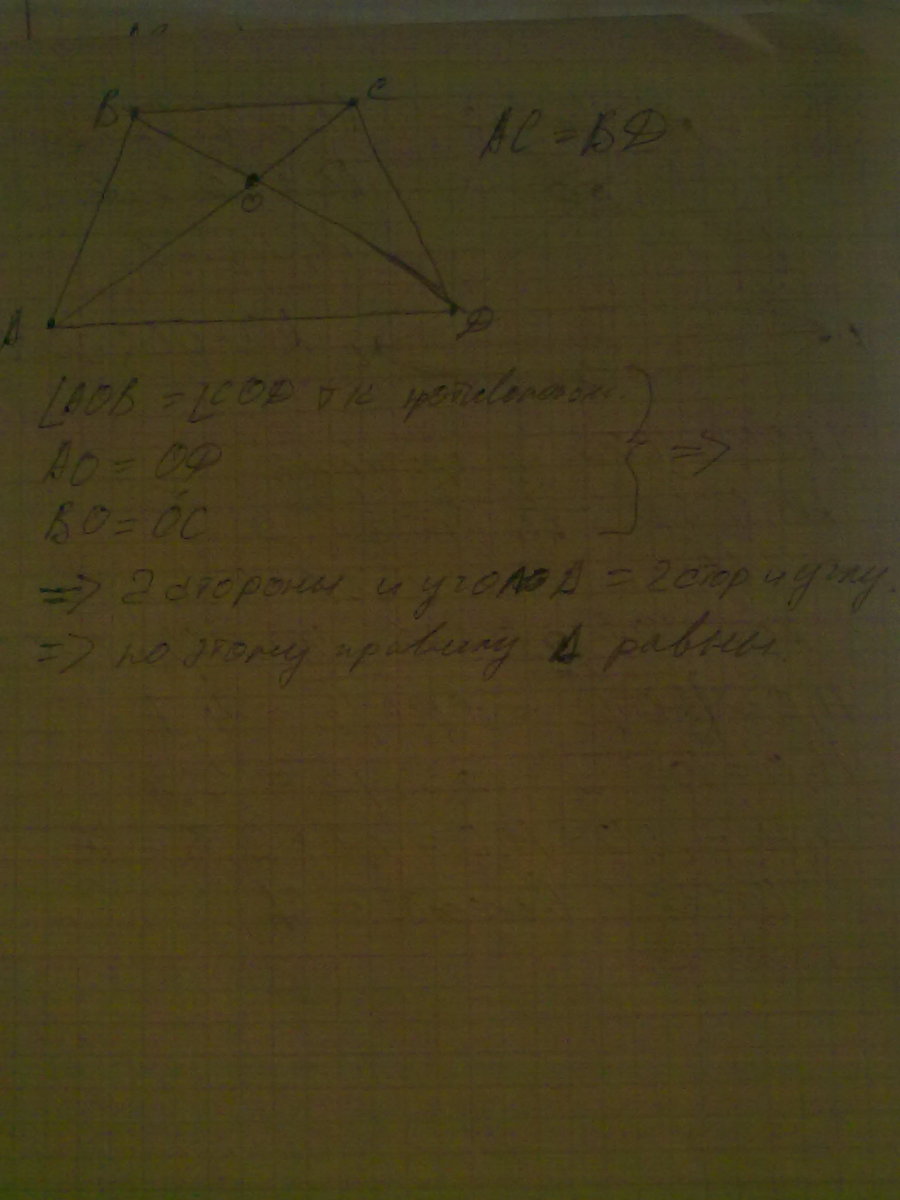 B C
AC = BD
O
A D
∠AOB = ∠COD т к противополож.
AO = OD
BO = OC
=>
=> 2 стороны и угол Δ = 2 стор и углу
=> по этому правилу Δ равны